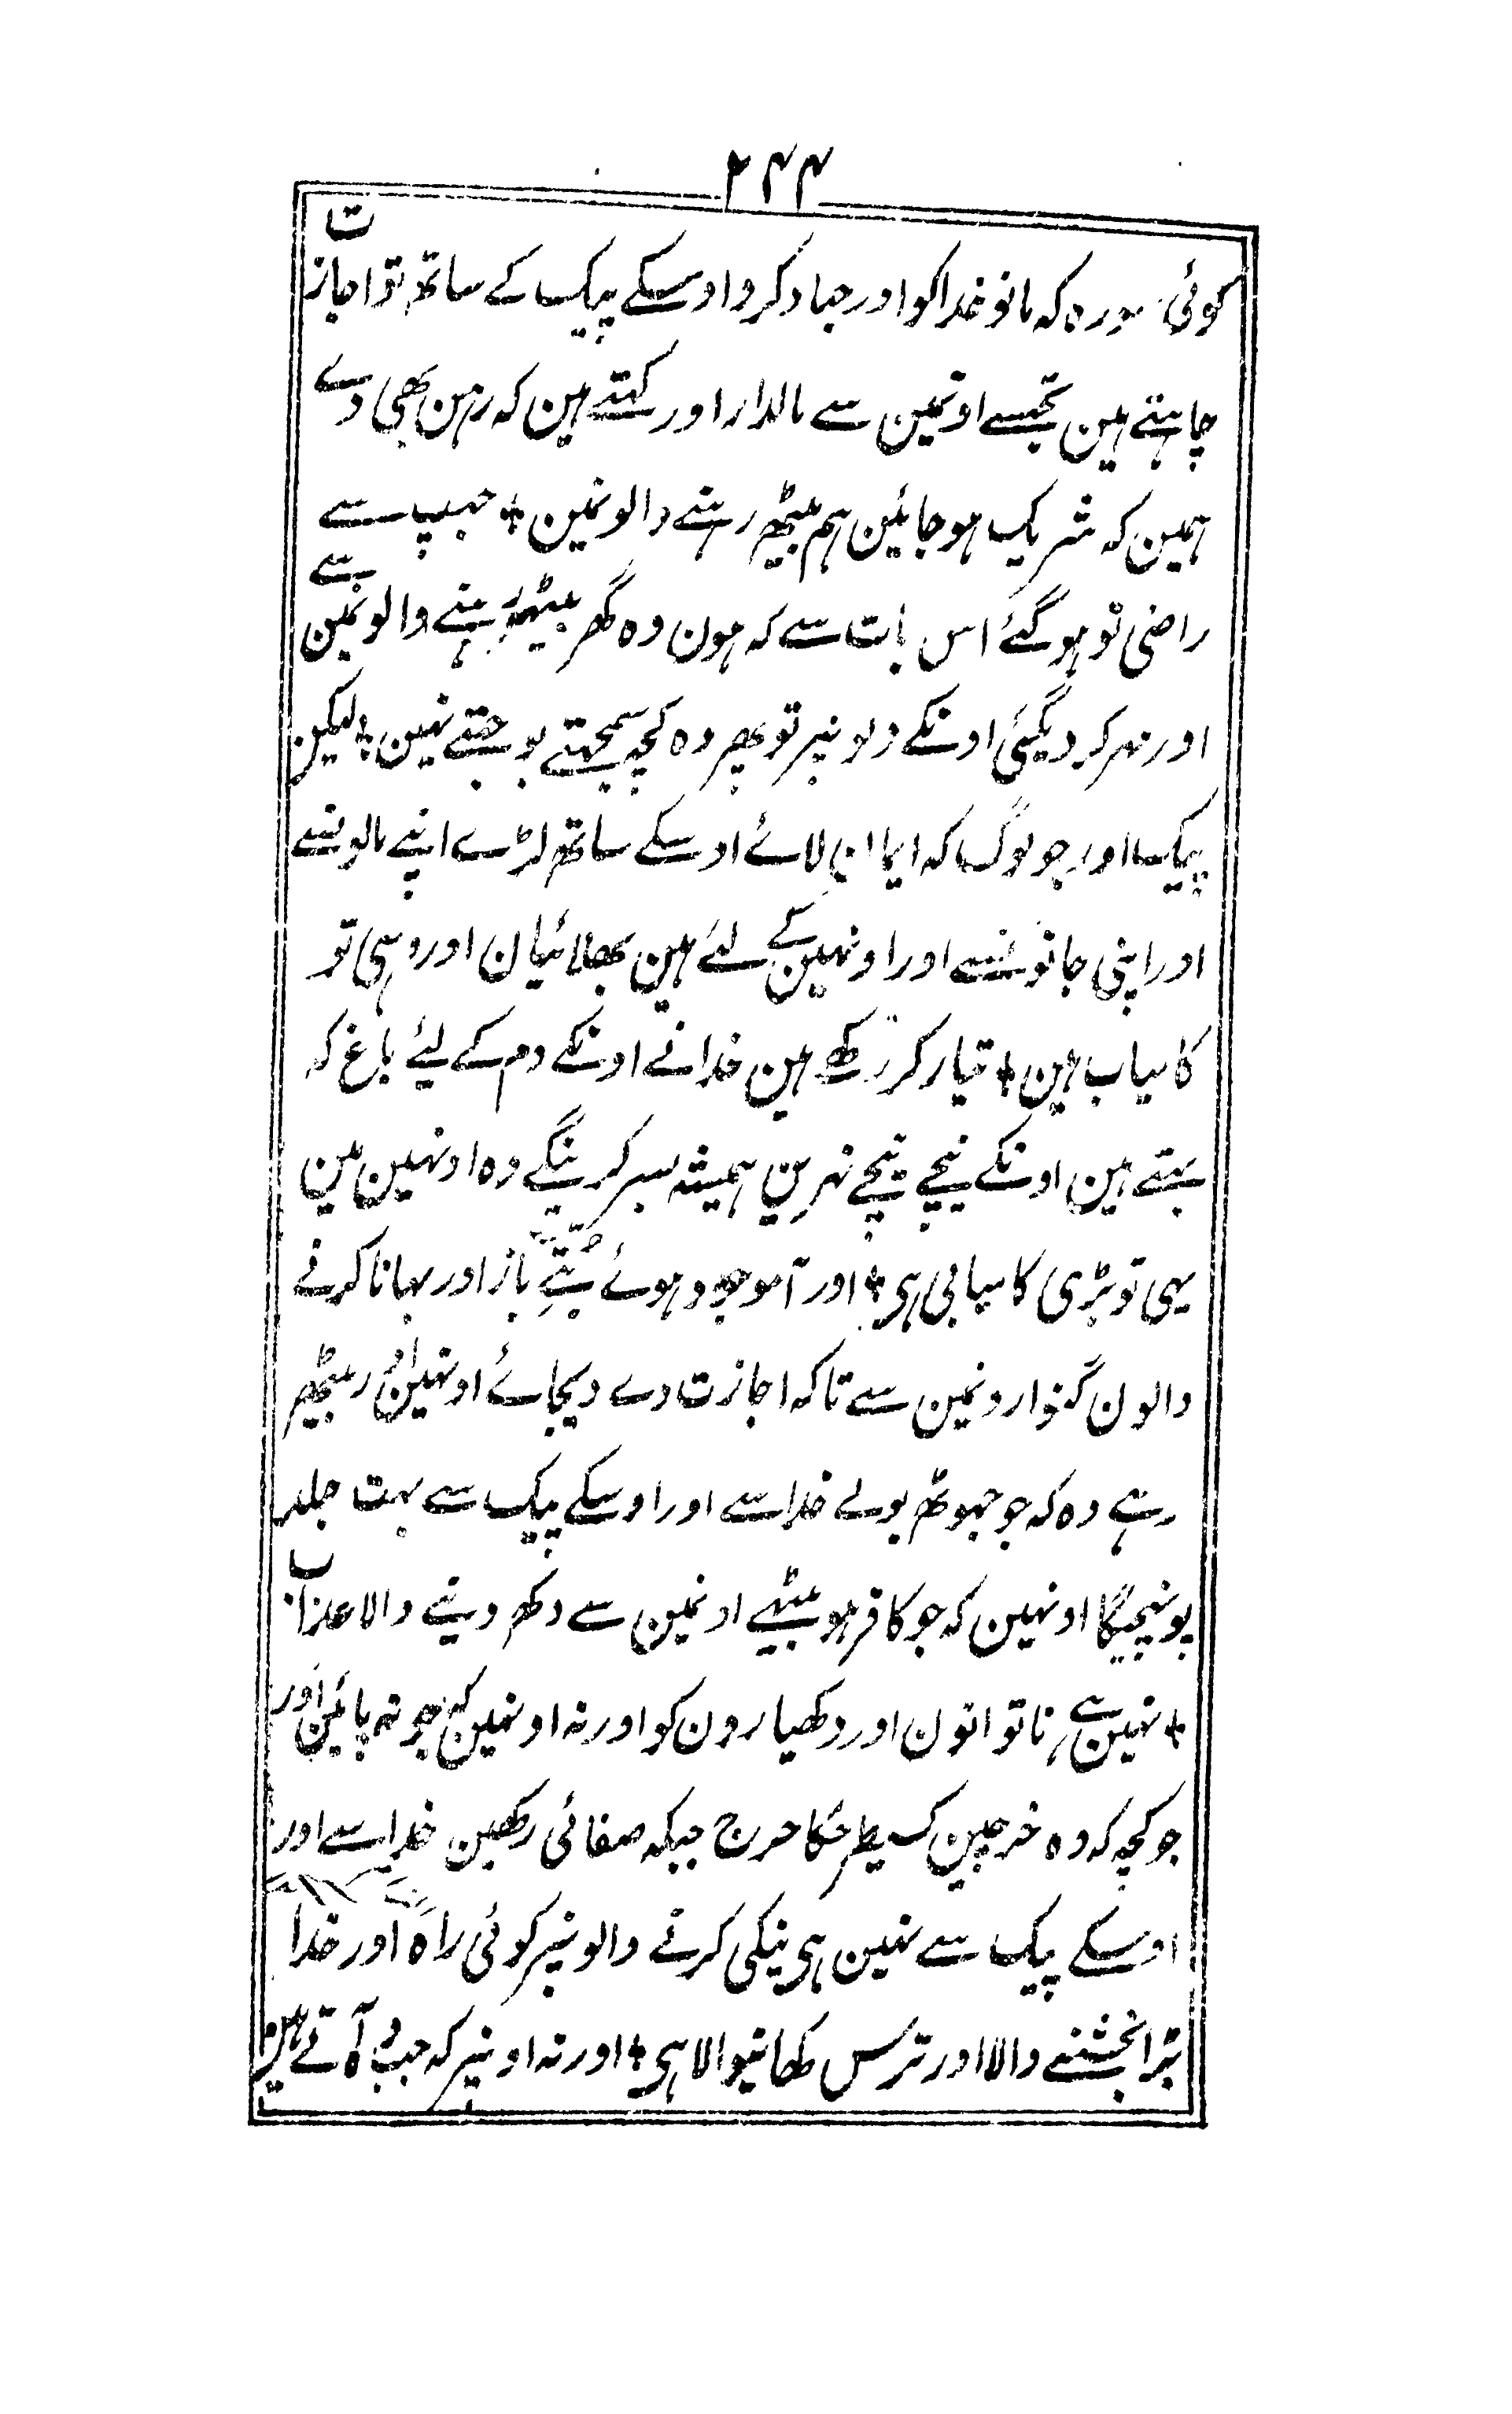 ۲۴۴
کوئی سورہ کہ مانو خدا کو اور جہاد کرو اوسکے پیک کے ساتھ تو اجازت
چاہتے ہین تجھسے اونمین سے مالدار اور کہتے ہین کہ رہن بھی دے
ہمین کہ شریک ہو جائین ہم بیٹھر رہنے والونمین + چپ سے
راضی تو ہو گئے اس بات سے کہ ہون وہ گھر بیٹھر رہنے والونمین سے
اور مہر کر دیگئی اونکے دلونپر تو پھر وہ کچھ سمجہتے بوجھتے نہین + لیکن
پیک اور جو لوگ کہ ایمان لائے اوسکے ساتھ لڑے اپنے مالونسے
اور اپنی جانونسے اور اونہین کے لئے ہین بھلائیان اور وہی تو
کامیاب ہین + تیار کر رکھے ہین خدا نے اونکے دم کے لیئے باغ کہ
بہتے ہین اونکے نیچے نیچے نہرین ہمیشہ بسر کرینگے وہ اونہین مین
یہی تو بڑی کامیابی ہی + اور آ موجود ہوئے بتّے باز اور بہانا کرنے
والون گنوارونمین سے تاکہ اجازت دے دیجائے اونہین اور بیٹھر
رہے وہ کہ جو جہوٹھ بولے خدا سے اور اوسکے پیک سے بہت جلد
پونہچیگا اونہین کہ جو کافر ہو بیٹھے اونمین سے دکھ دینے والا عذاب
+ نہین ہے ناتوانون اور دکھیارون کو اور نہ اونہین کہ جو نہ پائین اور
جو کچھ کہ وہ خرچین کسیطرحکا حرج جبکہ صفائی رکھین خدا سے اور
اوسکے پیک سے نہین ہی نیکی کرنے والونپر کوئی راہ اور خدا
بڑا بخشنے والا اور ترس کھانیوالا ہی + اور نہ اونپر کہ جب وہ آتے ہین